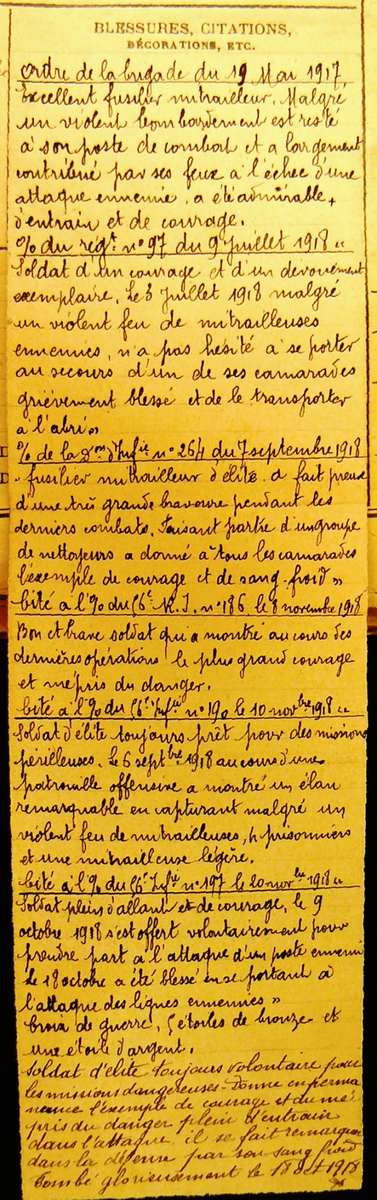 BLESSURES, CITATIONS,
DÉCORATIONS, ETC.
Ordre de la brigade du 19 Mai 1917
Excellent fusilier mitrailleur. Malgré
un violent bombardement est resté
à son poste de combat et a largement
contribué par ses feux à l'échec d'une
attaque ennemie, a été admirable
d'entrain et de courage.
O/ du régt n° 97 du 9 Juillet 1918 "
Soldat d'un courage et d'un dévouement
exemplaire. Le 3 Juillet 1918 malgré
un violent feu de mitrailleuses
ennemies, n'a pas hésité à se porter
au secours d'un de ses camarades
grièvement blessé et de le transporter
à l'abri »
O/ de la Don d'Infie n° 264 du 7 septembre 1918
" fusilier mitrailleur d'élite. a fait preuve
d'une très grande bravoure pendant les
derniers combats. Faisant partie d'un groupe
de nettoyeurs a donné à tous les camarades
l'exemple de courage et de sang-froid »
Cité à l'O/ du 56e R.I. n° 186 le 8 novembre 1918
Bon et brave soldat qui a montré au cours des
dernières opérations le plus grand courage
et mépris du danger.
Cité à l'O/ du 56e Infie n° 190 le 10 novbre 1918 "
Soldat d'élite toujours prêt pour des missions
périlleuses. Le 6 septbre 1918 au cours d'une
patrouille offensive a montré un élan
remarquable en capturant malgré un
violent feu de mitrailleuses, 4 prisonniers
et une mitrailleuse légère.
Cité à l'O/ du 56e Infie n° 197 le 20 novbre 1918 "
Soldat plein d'allant et de courage, le 9
octobre 1918 s'est offert volontairement pour
prendre part à l'attaque d'un poste ennemi
Le 18 octobre a été blessé en se portant à
l'attaque des lignes ennemies »
Croix de guerre, 5 étoiles de bronze et
une étoile d'argent.
Soldat d'élite toujours volontaire pour
les missions dangereuses. Donne en perma
nence l'exemple de courage et du mé
pris du danger plein d'entrain
dans l'attaque, il se fait remarquer
dans la défense par son sang froid
Tombé glorieusement le 18 oct 1918